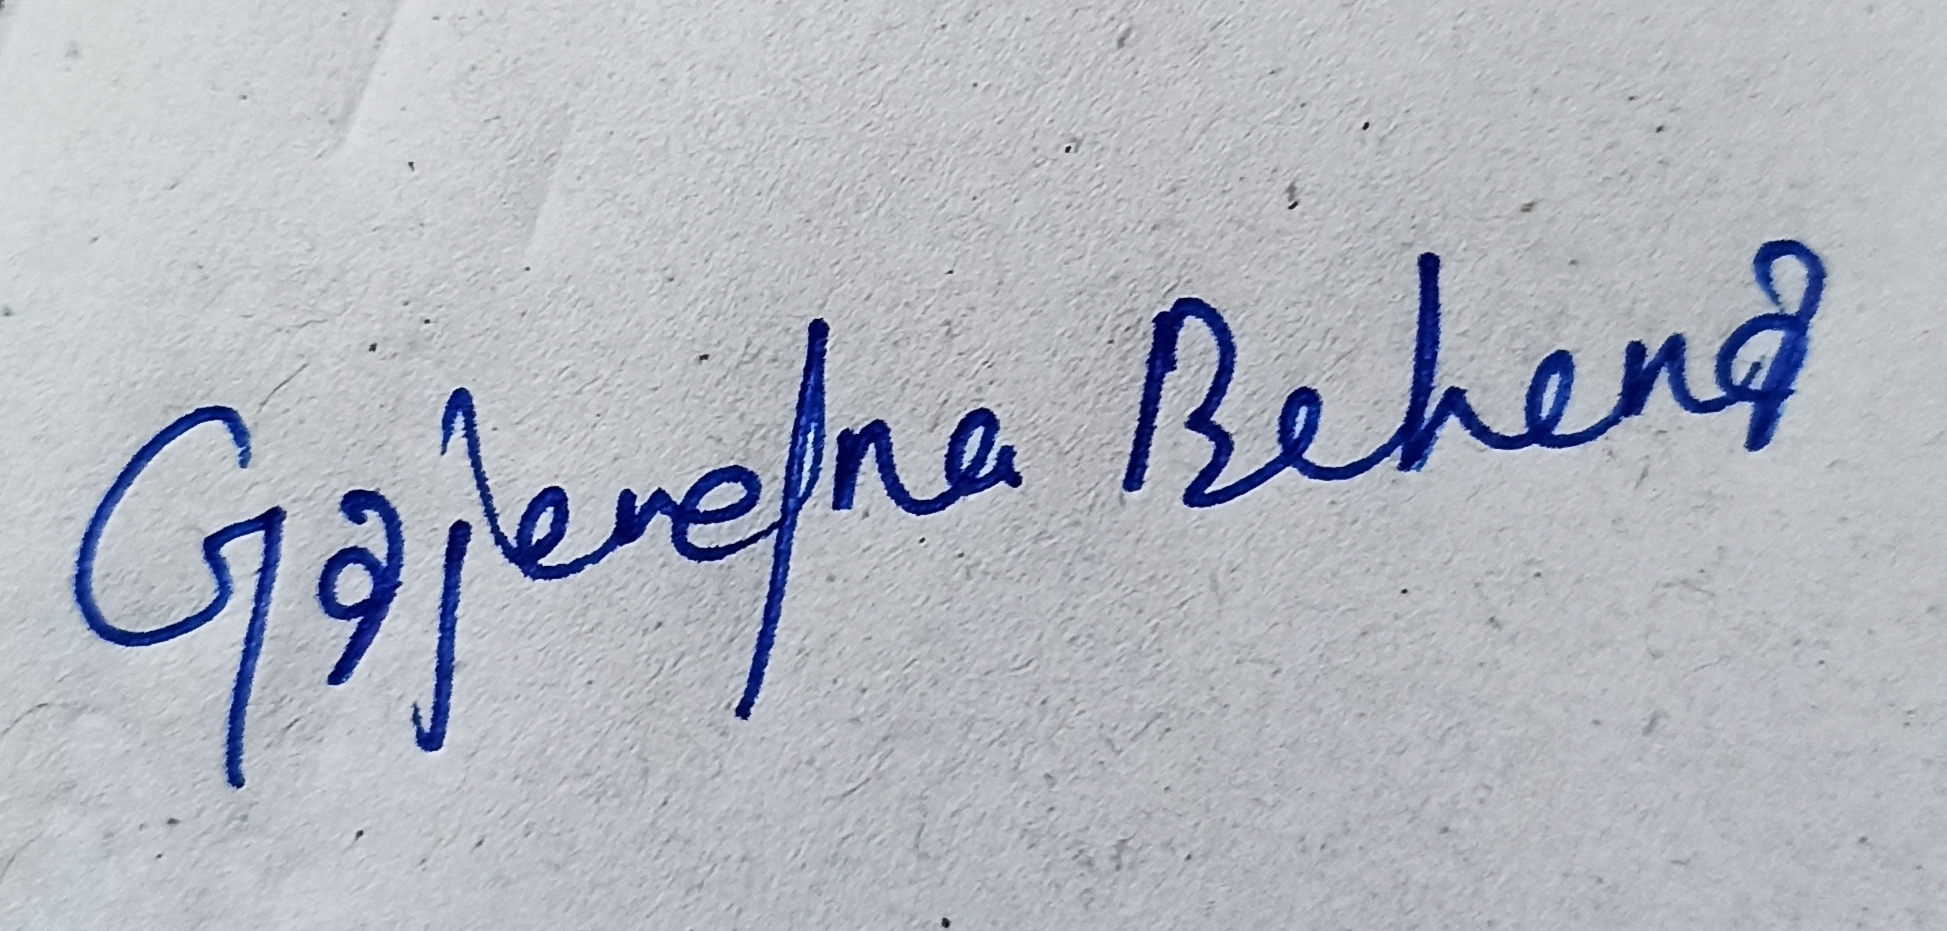 Gajendra Behera